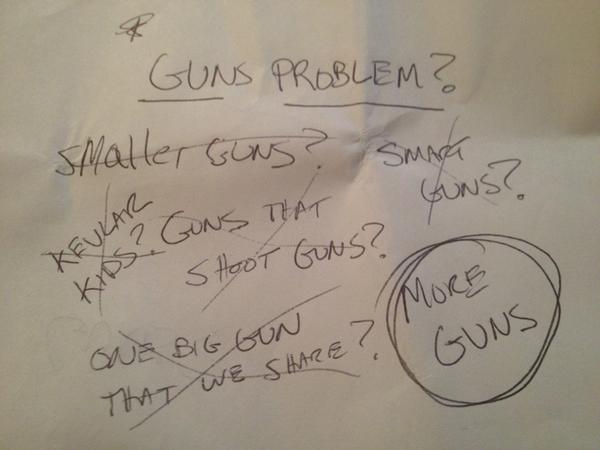 GUNS PROBLEM?
SMALLER GUNS?
SMART
GUNS?
KEVLAR
KIDS?
GUNS THAT
SHOOT GUNS?
ONE BIG GUN
THAT WE SHARE?
MORE
GUNS